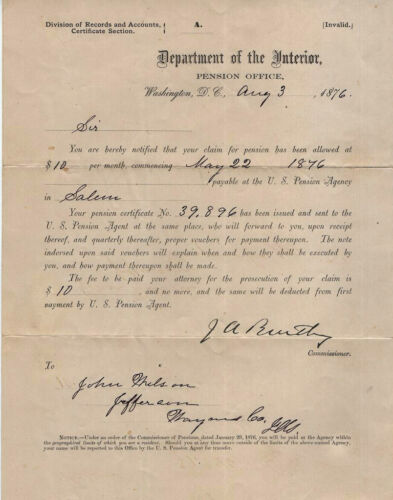 Division of Records and Accounts,
Certificate Section.
A.
[Invalid.]
Department of the Interior,
PENSION OFFICE,
Washington, D. C., Aug 3, 1876.
Sir
You are hereby notified that your claim for pension has been allowed at
$ 10 per month, commencing May 22 1876
payable at the U. S. Pension Agency
in Salem
Your pension certificate No. 39,896 has been issued and sent to the
U. S. Pension Agent at the same place, who will forward to you, upon receipt
thereof, and quarterly thereafter, proper vouchers for payment thereupon. The note
indorsed upon said vouchers will explain when and how they shall be executed by
you, and how payment thereupon shall be made.
The fee to be paid your attorney for the prosecution of your claim is
$ 10, and no more, and the same will be deducted from first
payment by U. S. Pension Agent.
J A
Commissioner.
To
John Wilson
Jefferson
Wayne Co. Ills
NOTICE.—Under an order of the Commissioner of Pensions, dated January 29, 1876, you will be paid at the Agency within
the geographical limits of which you are a resident. Should you at any time move outside of the limits of the above-named Agency,
your name will be reported to this Office by the U. S. Pension Agent for transfer.